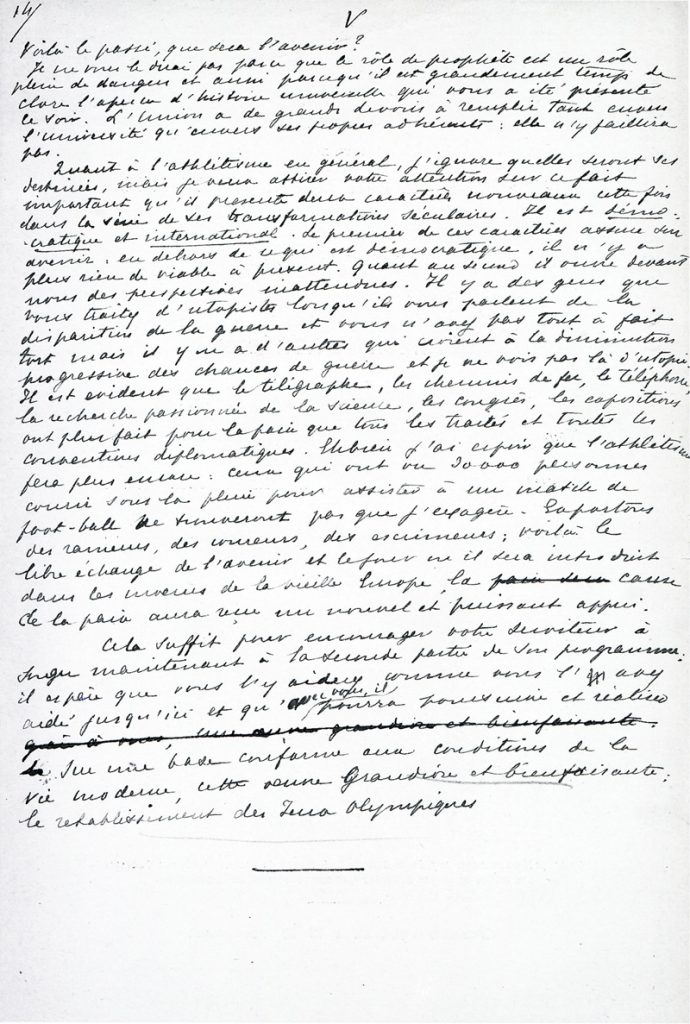 14/
V
Voilà le passé, que sera l'avenir?
Je ne vous le dirai pas parce que le rôle de prophète est un rôle
plein de dangers et aussi parcequ'il est grandement temps de
clore l'aperçu d'histoire universelle qui vous a été présenté
ce soir. L'Union a de grands devoirs à remplir tant envers
l'université qu'envers ses propres adhérents: elle n'y faillira
pas.
Quant à l'athlétisme en général, j'ignore quelles seront ses
destinées, mais je veux attirer votre attention sur ce fait
important qu'il présente deux caractères nouveaux cette fois
dans la série de ses transformations séculaires. Il est démo-
-cratique et international. Le premier de ces caractères assure son
avenir: en dehors de ce qui est démocratique, il n'y a
plus rien de viable à présent. Quant au second il ouvre devant
nous des perspectives inattendues. Il y a des gens que
vous traitez d'utopistes lorsqu'ils vous parlent de la
disparition de la guerre et vous n'avez pas tout à fait
tort mais il y en a d'autres qui croient à la diminution
progressive des chances de guerre et je ne vois pas là d'utopie.
Il est évident que le télégraphe, les chemins de fer, le téléphone,
la recherche passionnée de la science, les congrès, les expositions
ont plus fait pour la paix que tous les traités et toutes les
conventions diplomatiques. Ehbien j'ai espoir que l'athlétisme
fera plus encore: ceux qui ont vu 30000 personnes
courir sous la pluie pour assister à un match de
foot-ball ne trouveront pas que j'exagère. Exportons
des rameurs, des coureurs, des escrimeurs; voilà le
libre échange de l'avenir et le jour où il sera introduit
dans les mœurs de la vieille Europe, la paix sera cause
de la paix aura reçu un nouvel et puissant appui.
Cela suffit pour encourager votre serviteur à
songer maintenant à la seconde partie de son programme;
il espère que vous l'y aiderez comme vous l'avez
aidé jusqu'ici et qu'avec vous, il pourra poursuivre et réaliser
grâce à vous, une œuvre grandiose et bienfaisante.
sur une base conforme aux conditions de la
vie moderne, cette œuvre grandiose et bienfaisante;
le rétablissement des Jeux Olympiques